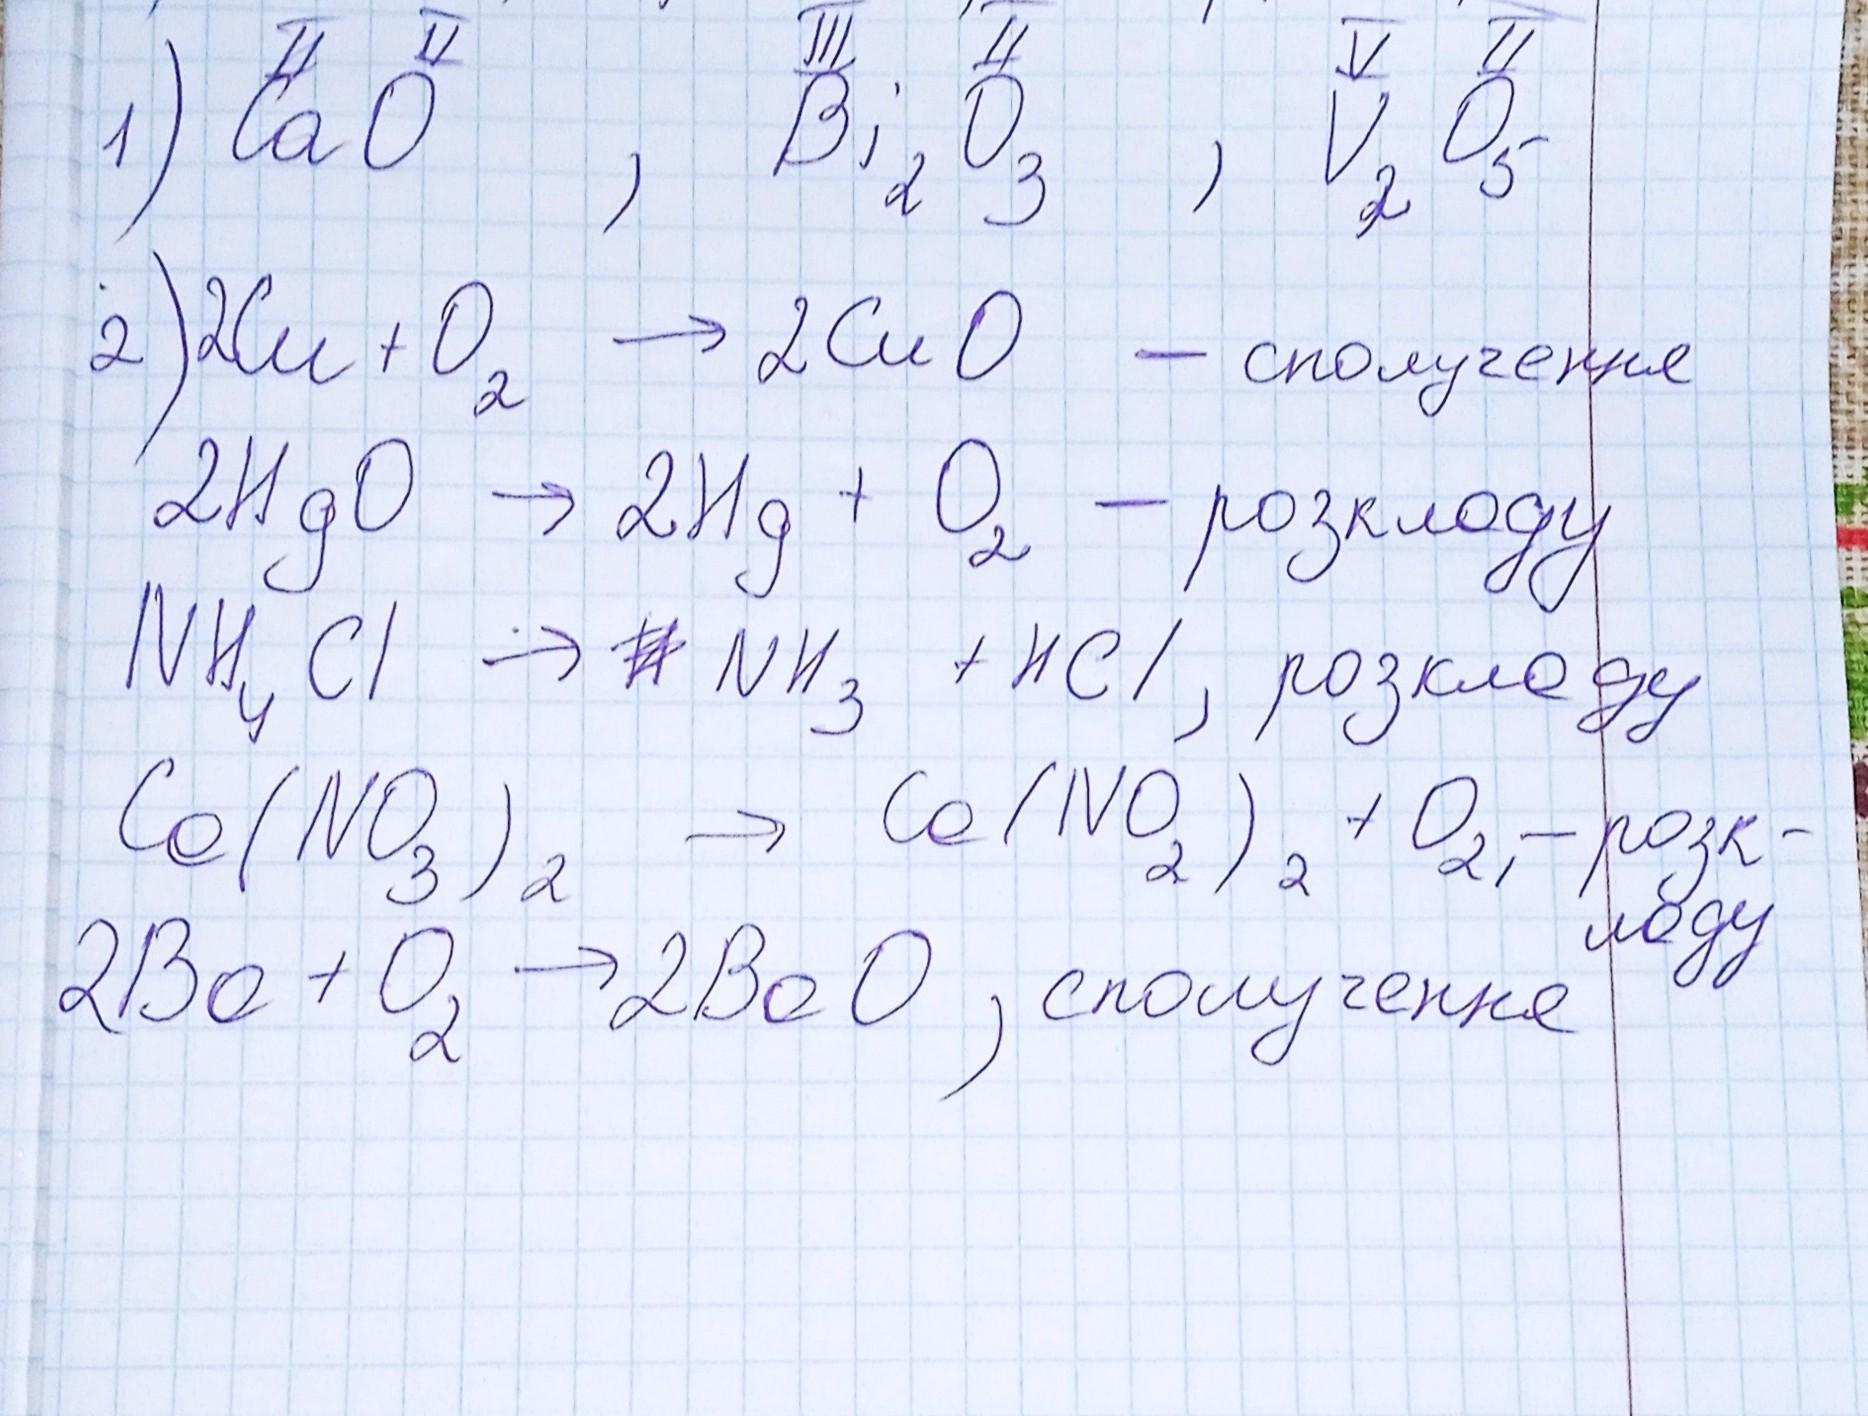 II II III II V II
1) CaO , Bi₂O₃ , V₂O₅
2) 2Cu + O₂ → 2CuO – сполучення
2HgO → 2Hg + O₂ – розкладу
NH₄Cl → NH₃ + HCl, розкладу
Ca(NO₃)₂ → Ca(NO₂)₂ + O₂, – розк-
ладу
2Ba + O₂ → 2BaO, сполучення